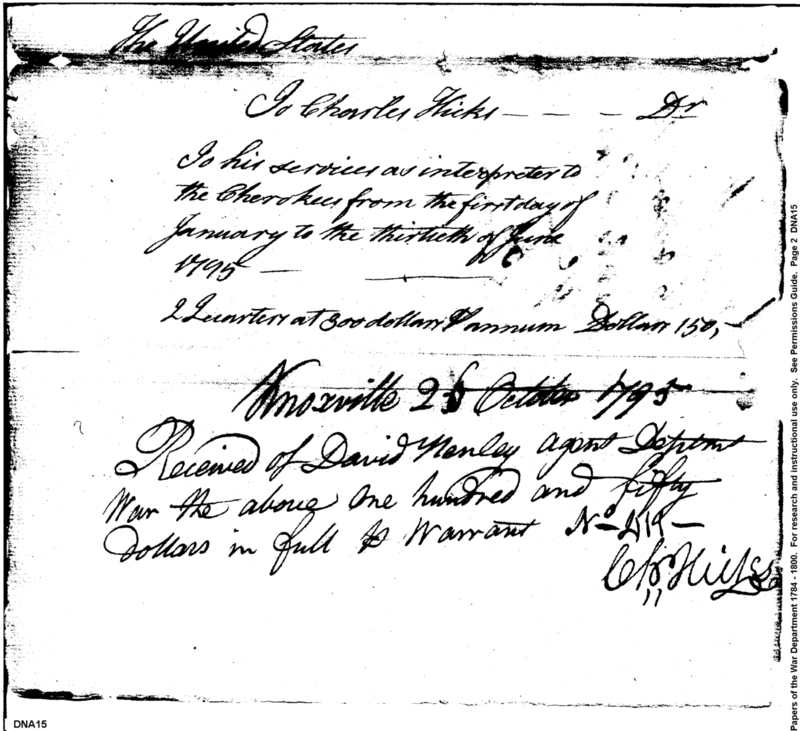 The United States
To Charles Hicks — — — Dr
To his services as interpreter to
the Cherokees from the first day of
January to the thirtieth of June
1795 — —
2 Quarters at 300 dollars P annum Dollars 150,—
Knoxville October 1795
Received of David Henley agent Deptmt
War the above One hundred and fifty
Dollars in full P Warrant No
Chs Hicks
Papers of the War Department 1784 - 1800. For research and instructional use only. See Permissions Guide. Page 2 DNA15
DNA15